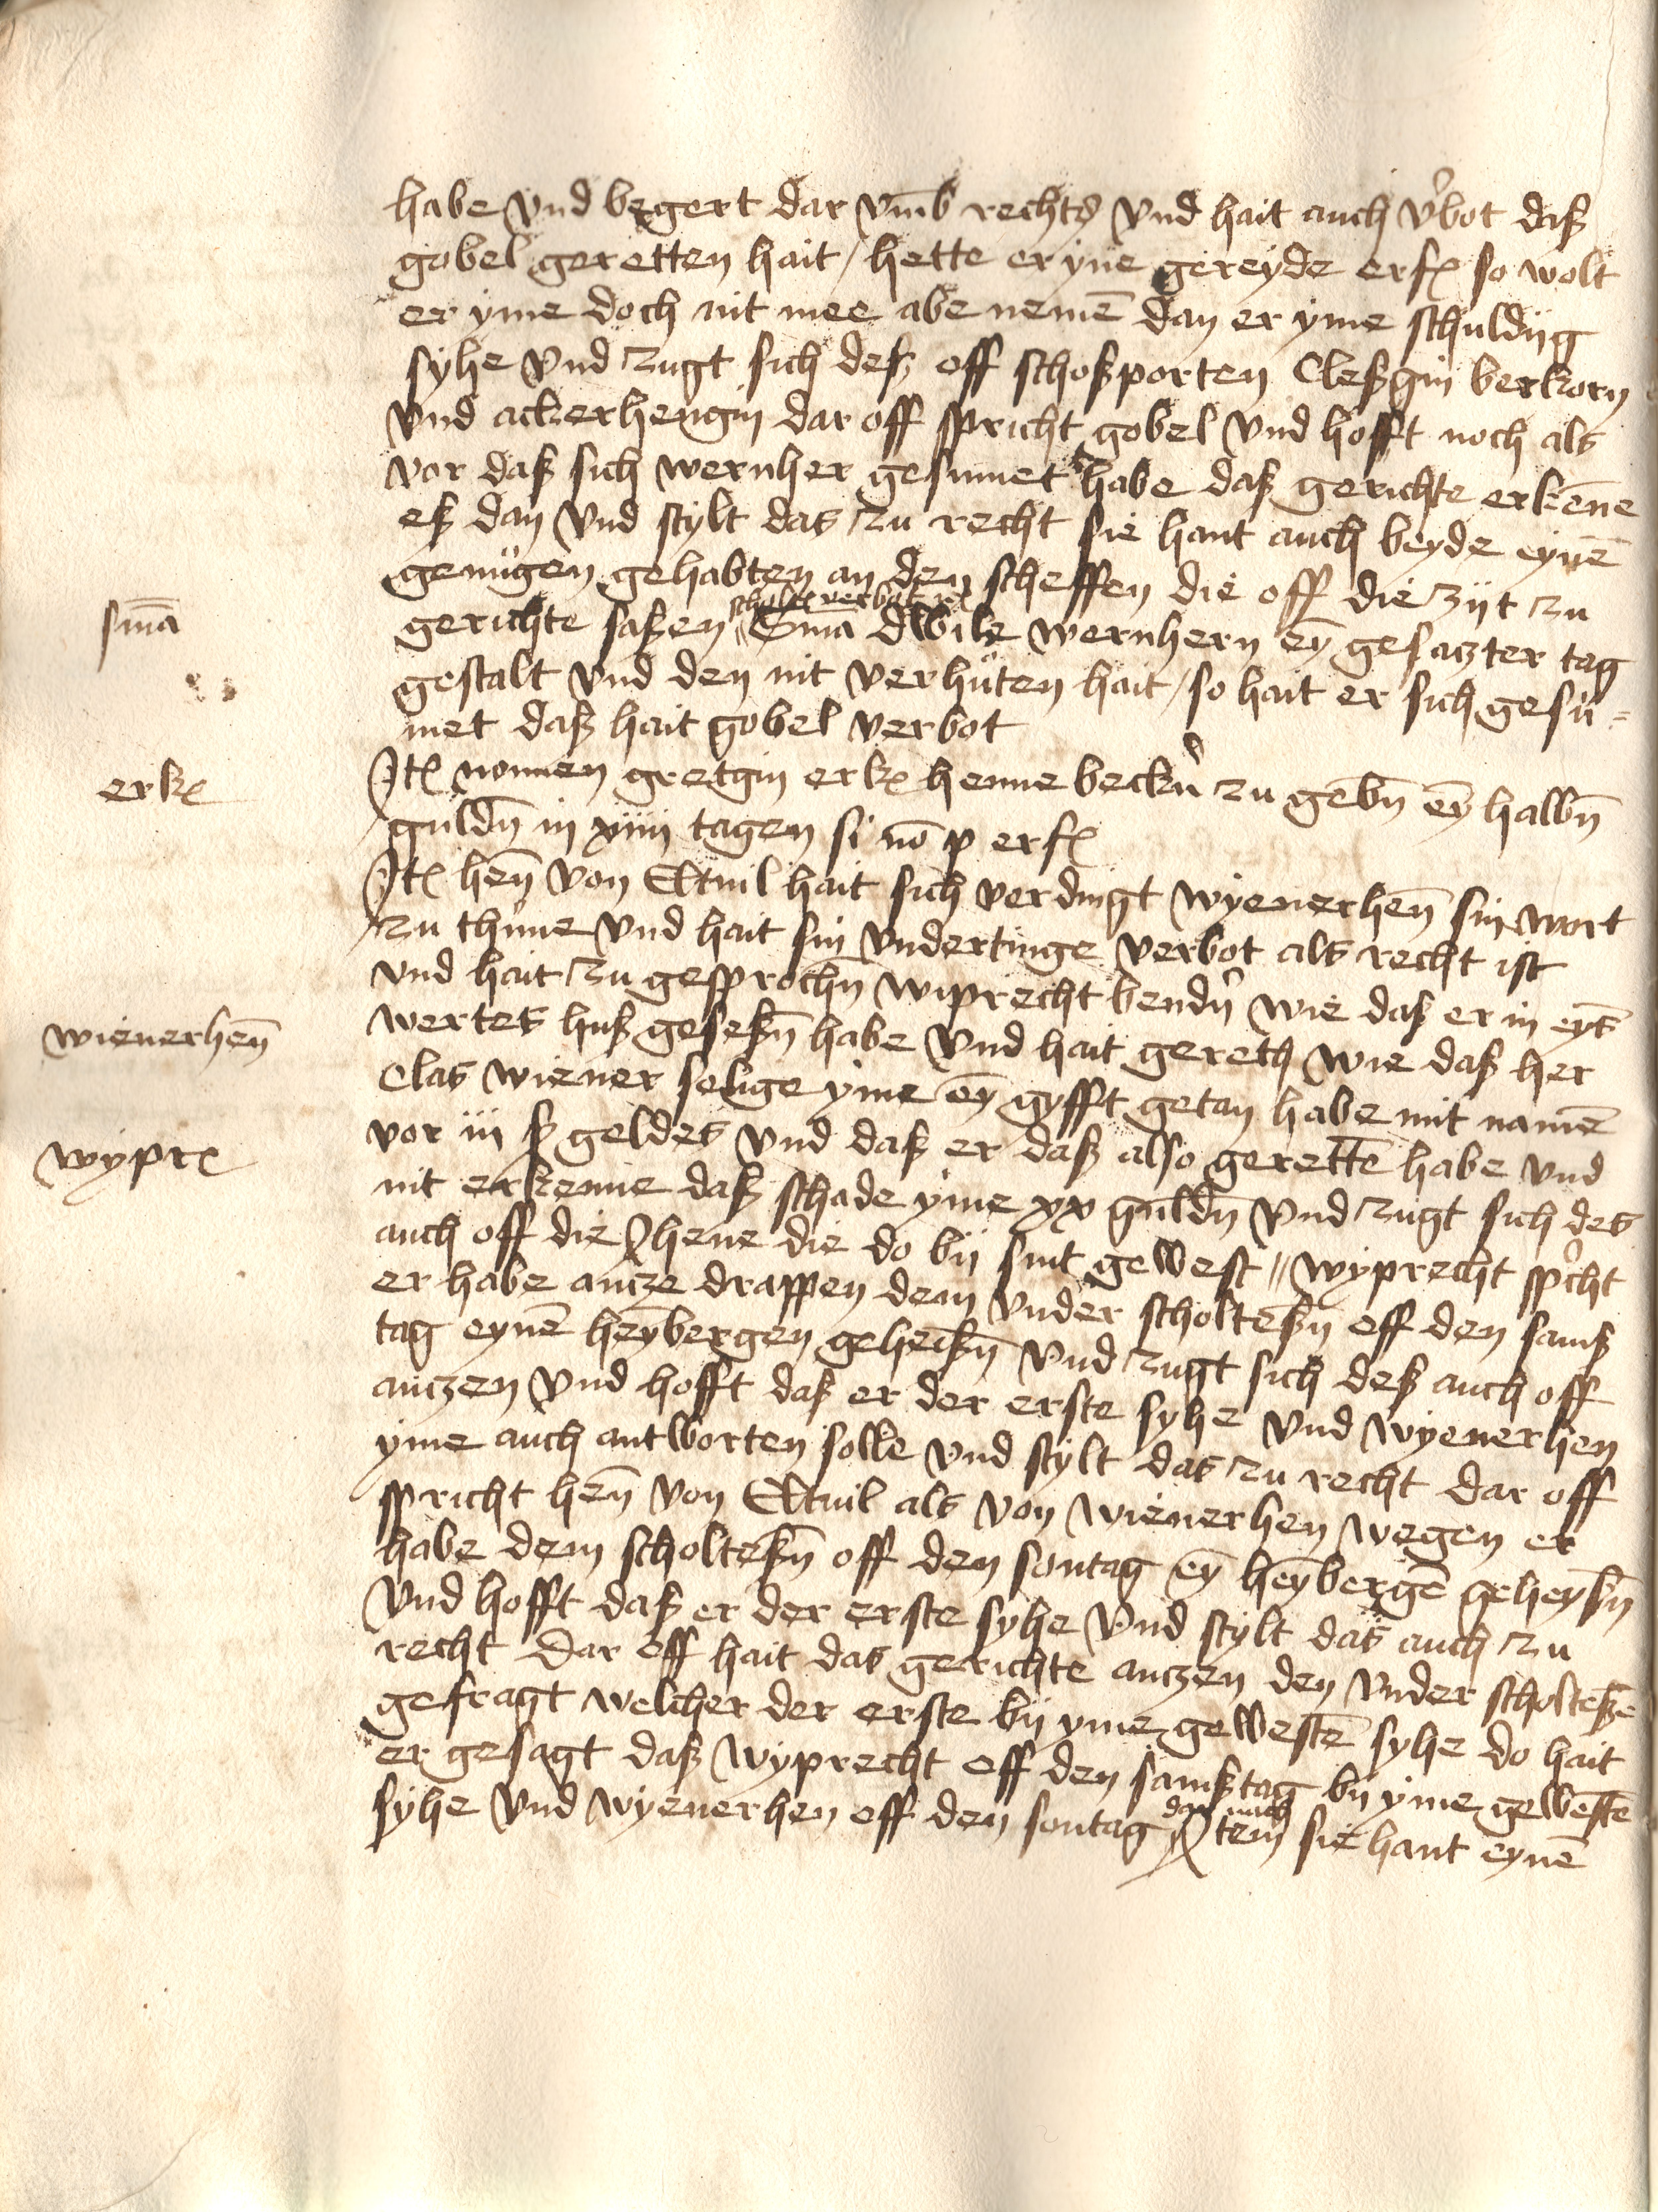 habe vnd begert dar vm̄b rechts vnd hait auch v'bot daß
gobel geretten hait / hette er yme gereyde erf so wolt
er yme doch nit mee abe nemē dan er yme schuldig
syhe vnd zugt sich deß off schoßporten Cleßgin berkorn
vnd ackerhengin dar off spricht gobel vnd hofft noch als
vor daß sich wernher gesumet habe daß gerichte erkēne
eß dan vnd stylt das zu recht sie hant auch beyde eynē
genugen gehabten an den scheffen die off die zijt zu
scholt verbot
smā
gerichte saßen // Sma dwile wernhern eȳ gesaczter tag
gestalt vnd den nit verhuten hait / so hait er sich gesu=
met daß hait gobel verbot
erk
Jt nonnen gretgin erk henne beckn' zu gebn̄ eȳ halbn̄
guldn̄ in xiiii tagen si nō p erf
Jt hen̄ von Eltuil hait sich verdingt wyenerhen̄ sin wort
zu thune vnd hait sin vndertinge verbot als recht ist
vnd hait zu gesprochn̄ wiprecht bendn' wie daß er in eyS
wienerhen̄
wertes huß geseßn̄ habe vnd hait gereth wie daß her
Clas wiener selige yme eȳ gyfft getan habe mit namē
wypr
vor iii ß geldes vnd daß er daß also gerettē habe vnd
nit erkenne daß schade yme xx guldn̄ vnd zugt sich des
auch off die jhene die do bij sint gewest // wyprecht sp'cht
er habe ancze drappen dem vnder scholteßn̄ off den samß
tag eynē heȳbergen geheißn̄ vnd zugt sich deß auch off
anczen vnd hofft daß er der erste syhe vnd wyenerhen
yme auch antworten solle vnd stylt das zu recht dar off
spricht hen̄ von Eltuil als von wienerhen wegen er
habe dem scholteßn̄ off den sontag eȳ heȳbergē geheyßn̄
vnd hofft daß er der erste syhe vnd stylt das auch zu
recht dar off hait das gerichte anczen den vnder scholteßē
gefragt welcher der erste bij yme gewestē syhe do hait
er gesagt daß wyprecht off den samßtag bij yme gewestē
dar nach
syhe vnd wyenerhen off den sontag Jtem sie hant eynē